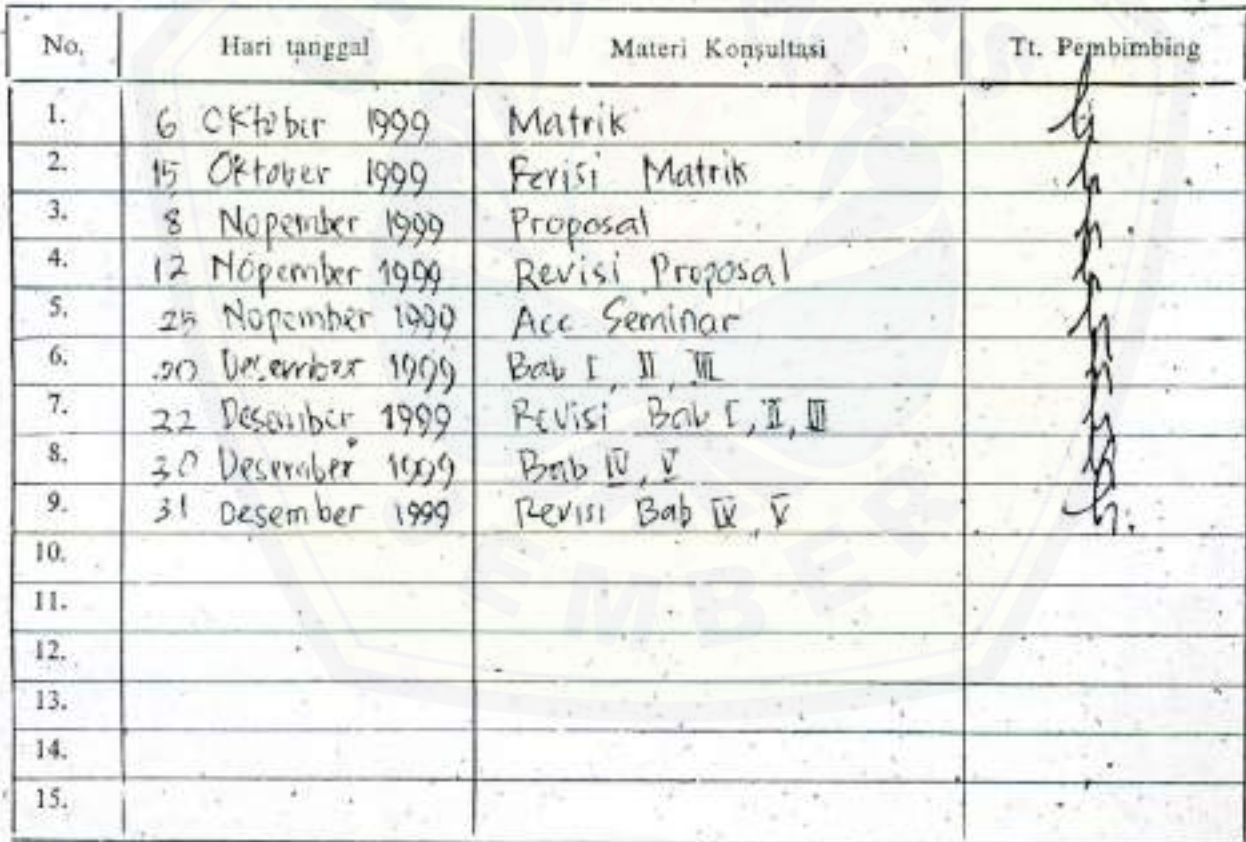 No. Hari tanggal Materi Konsultasi Tt. Pembimbing
1. 6 Oktober 1999 Matrik
2. 15 Oktober 1999 Revisi Matrik
3. 8 Nopember 1999 Proposal
4. 12 Nopember 1999 Revisi Proposal
5. 25 Nopember 1999 Acc Seminar
6. Desember 1999 Bab I, II, III
7. 22 Desember 1999 Revisi Bab I, II, III
8. 30 Desember 1999 Bab IV, V
9. 31 Desember 1999 Revisi Bab IV, V
10.
11.
12.
13.
14.
15.